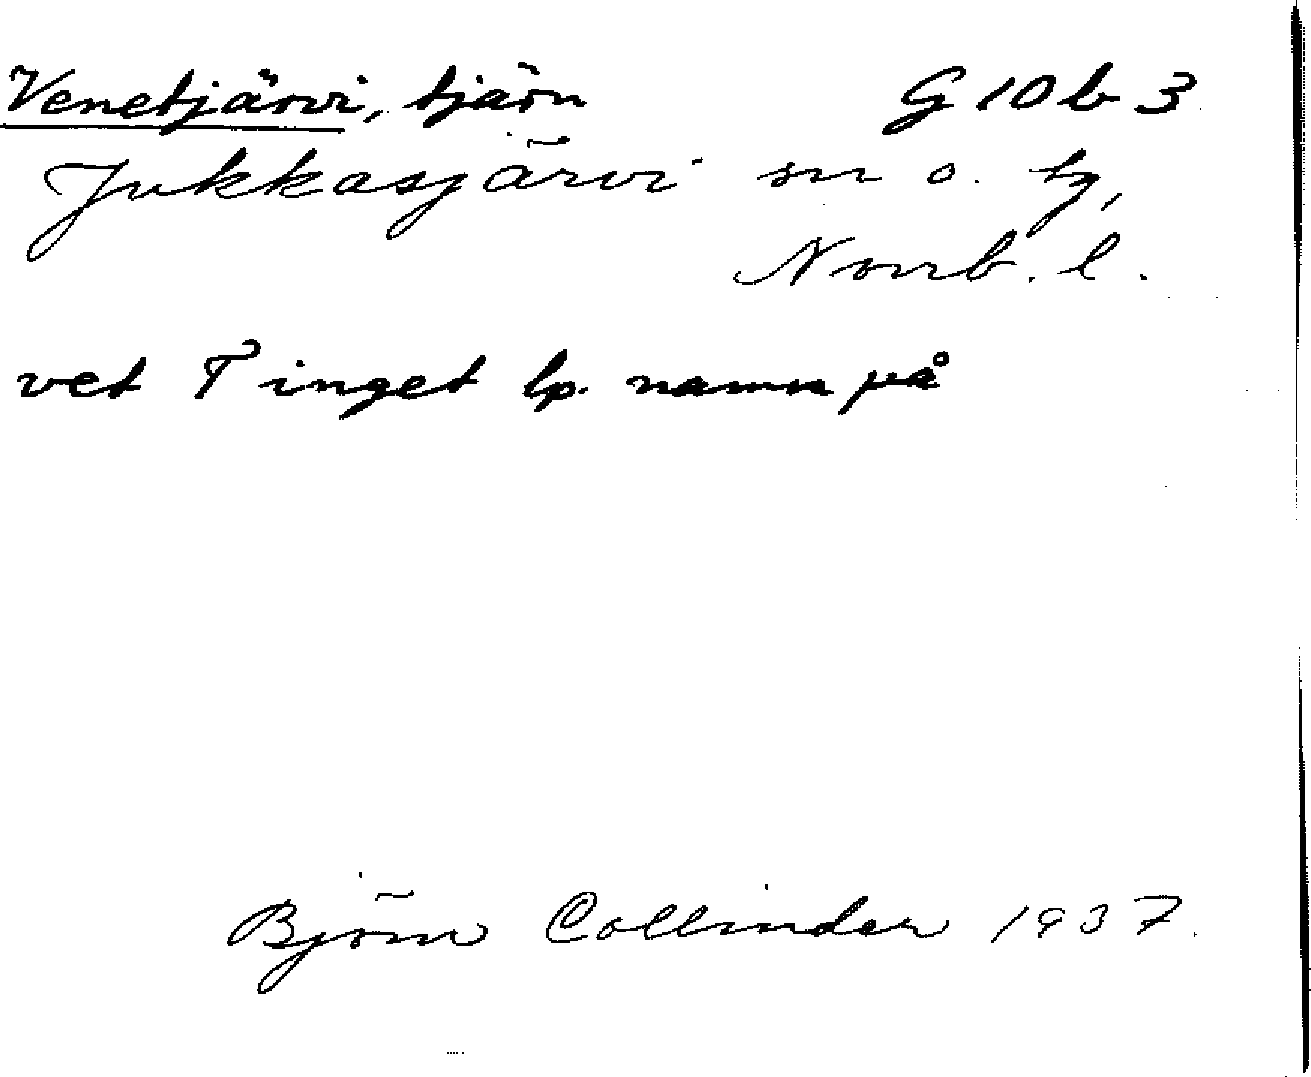 Venetjärvi, tjärn G 10 b 3
Jukkasjärvi sn o. tg,
Norrb. l.
vet T inget lp. namn på
Björn Collinder 1937.